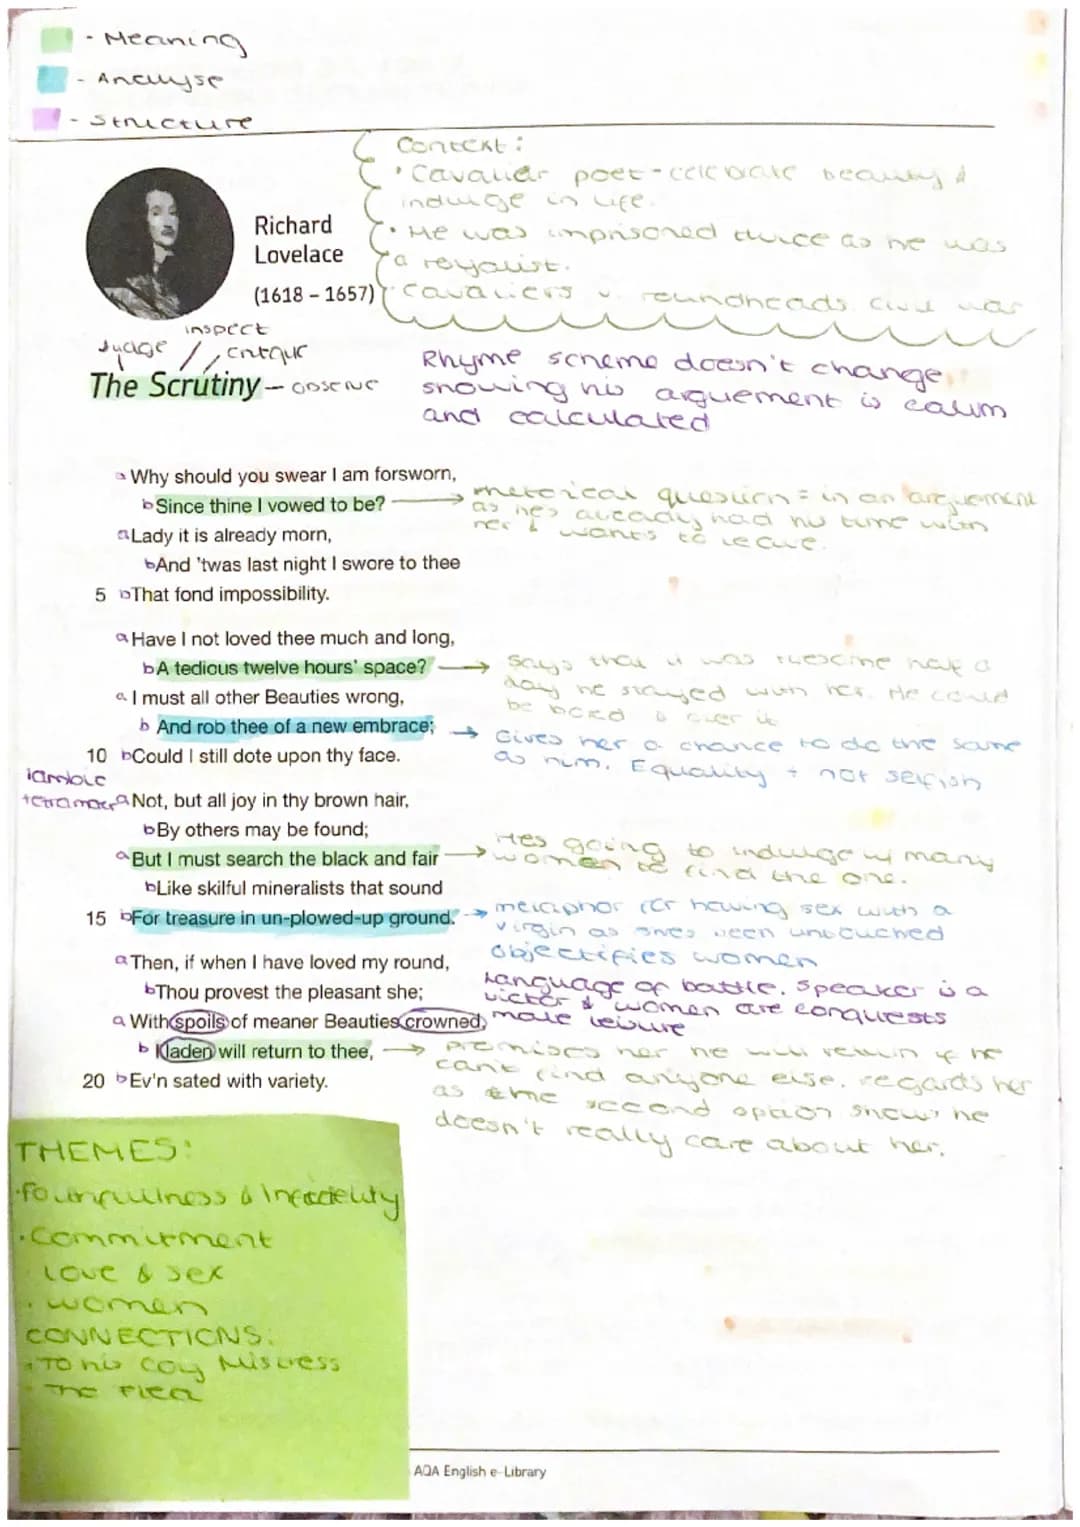 - Meaning
- Analyse
- Structure
Context:
• Cavalier poet - celebrate beauty &
indulge in life.
• He was imprisoned twice as he was
a royalist.
• Cavaliers v. roundheads civil war
Richard
Lovelace
(1618 – 1657)
inspect
Judge
critque
The Scrutiny - observe
Rhyme scheme doesn't change
showing his arguement is calm
and calculated
a Why should you swear I am forsworn,
b Since thine I vowed to be?
rhetorical question = in an arguement
as hes already had his time with
her & wants to leave.
a Lady it is already morn,
b And 'twas last night I swore to thee
5 b That fond impossibility.
a Have I not loved thee much and long,
b A tedious twelve hours' space?
says that it was tiresome half a
day he stayed with her. He could
be bored over it
a I must all other Beauties wrong,
b And rob thee of a new embrace;
Gives her a chance to do the same
as him. Equality + not selfish
10 b Could I still dote upon thy face.
iambic
a Not, but all joy in thy brown hair,
b By others may be found;
a But I must search the black and fair
Hes going to indulge w/ many
women to find the one.
b Like skilful mineralists that sound
15 b For treasure in un-plowed-up ground.
metaphor for having sex with a
virgin as shes been untouched
objectifies women
a Then, if when I have loved my round,
b Thou provest the pleasant she;
Language of battle. Speaker is a
victor & women are conquests
male leisure
a With spoils of meaner Beauties crowned,
b I laden will return to thee,
promises her he will return if he
can't find anyone else. regards her
as the second option shows he
doesn't really care about her.
20 b Ev'n sated with variety.
THEMES:
• Faithfulness & Infidelity
• Commitment
Love & sex
• women
CONNECTIONS:
• To his Coy Mistress
• The Flea
AQA English e-Library